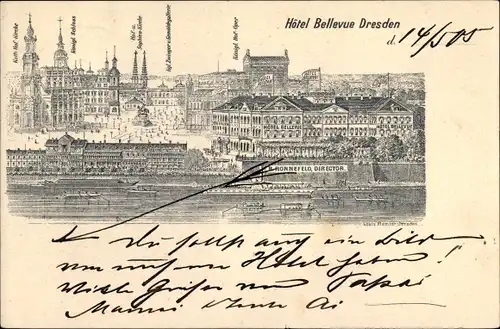 Hôtel Bellevue Dresden
d. 14/5 05
Kath. Hof-Kirche
Königl. Schloss
Hof u. Sophien-Kirche
Kgl. Zwinger u. Gemäldegallerie
Königl. Hof-Oper
RONNEFELD, DIRECTOR.
Du sollst auch ein Bild
von unserem Hotel haben!
Viele Grüße von Papai
Mammi